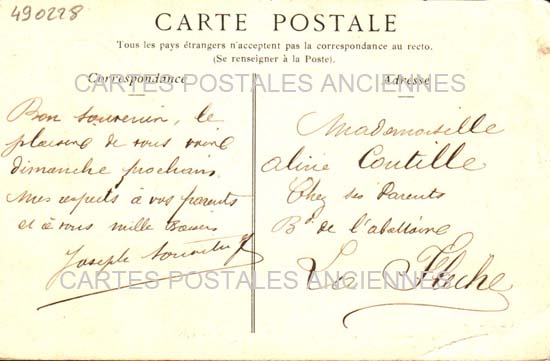 490228
CARTE POSTALE
Tous les pays étrangers n'acceptent pas la correspondance au recto.
(Se renseigner à la Poste).
Correspondance
Adresse
CARTES POSTALES ANCIENNES
Bon souvenir, le
plaisir de vous voir
dimanche prochain,
Mes respects à vos parents
et à vous mille baisers
Joseph
Mademoiselle
Aline Coutille
Chez ses Parents
Bd de l'abattoire
La Flèche
CARTES POSTALES ANCIENNES